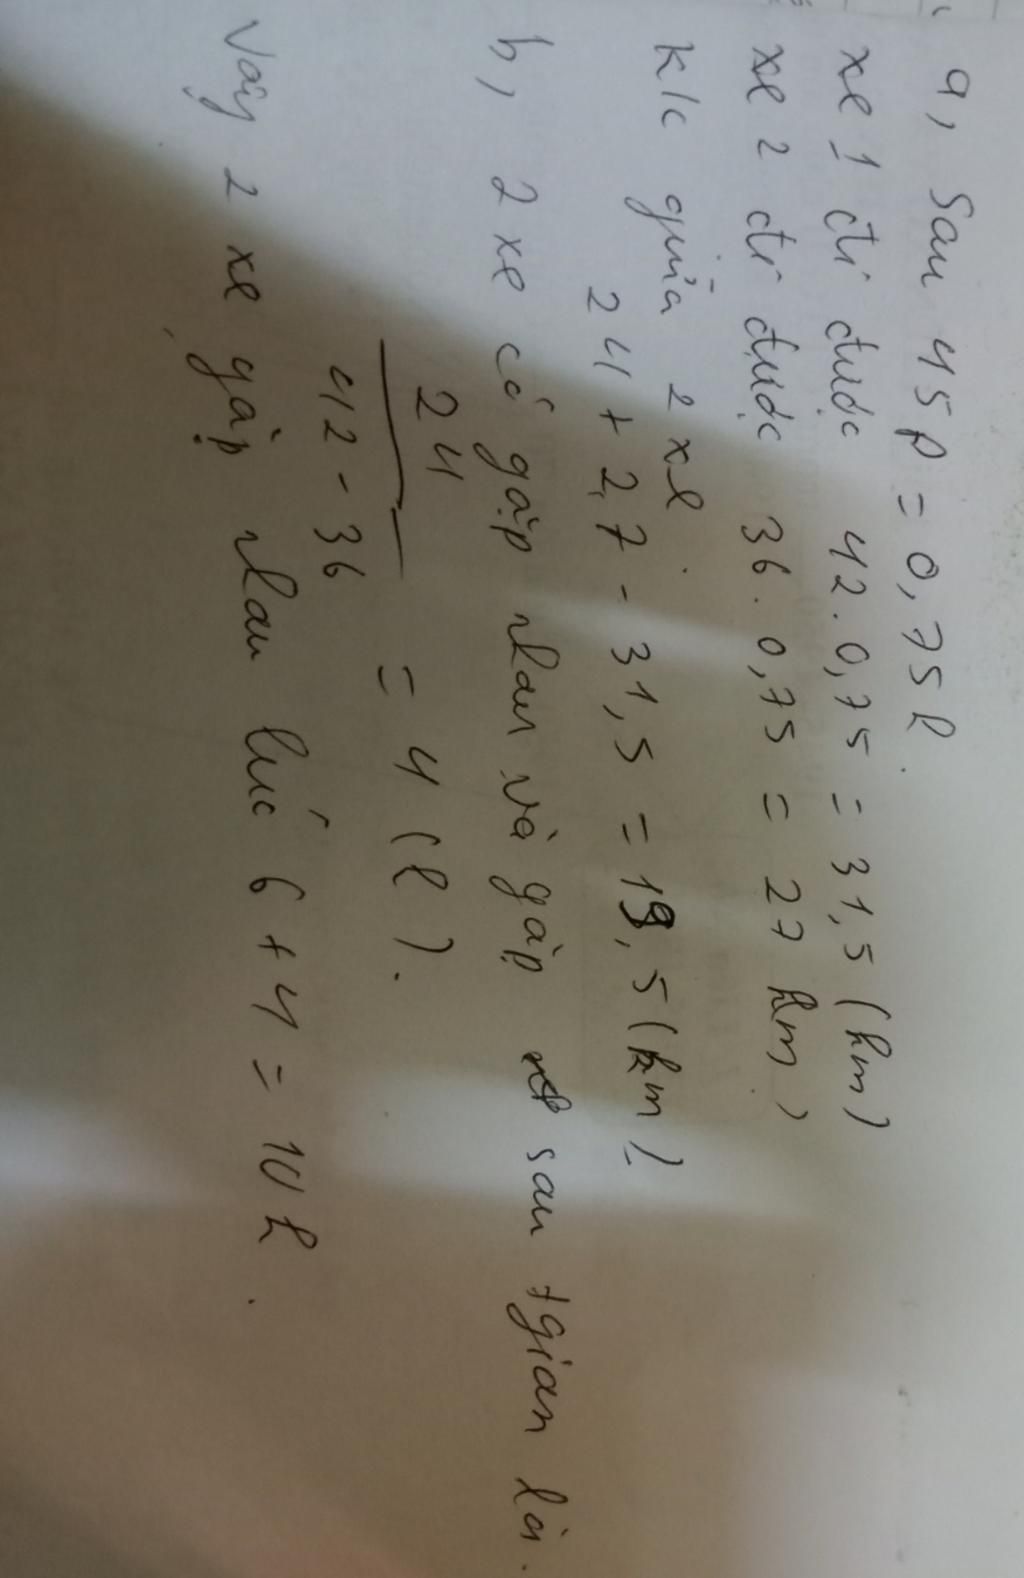 a, Sau 45p = 0,75h.
xe 1 đi được 42.0,75 = 31,5 (km)
xe 2 đi được 36.0,75 = 27 km)
K/c giữa 2 xe.
24 + 2,7 - 31,5 = 19,5 (km)
b, 2 xe có gặp nhau và gặp sau tgian là.
24
42 - 36
= 4 (h).
Vậy 2 xe gặp nhau lúc 6 + 4 = 10h.